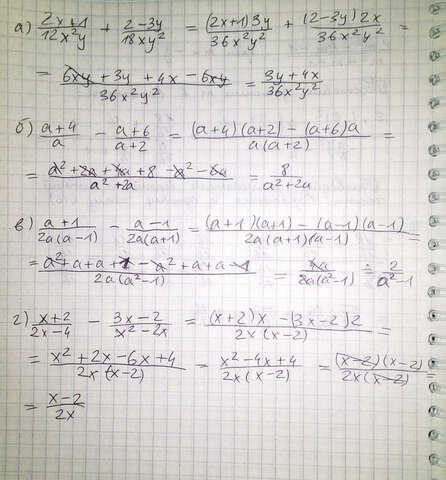 а) (2x+1)/(12x²y) + (2-3y)/(18xy²) = ((2x+1)3y)/(36x²y²) + ((2-3y)2x)/(36x²y²) =
= (6xy + 3y + 4x - 6xy)/(36x²y²) = (3y+4x)/(36x²y²)
б) (a+4)/a - (a+6)/(a+2) = ((a+4)(a+2) - (a+6)a)/(a(a+2)) =
= (a²+2a+4a+8-a²-6a)/(a²+2a) = 8/(a²+2a)
в) (a+1)/(2a(a-1)) - (a-1)/(2a(a+1)) = ((a+1)(a+1) - (a-1)(a-1))/(2a(a+1)(a-1)) =
= (a²+a+a+1-a²+a+a-1)/(2a(a²-1)) = 4a/(2a(a²-1)) = 2/(a²-1)
г) (x+2)/(2x-4) - (3x-2)/(x²-2x) = ((x+2)x - (3x-2)2)/(2x(x-2)) =
= (x²+2x-6x+4)/(2x(x-2)) = (x²-4x+4)/(2x(x-2)) = ((x-2)(x-2))/(2x(x-2))
= (x-2)/(2x)